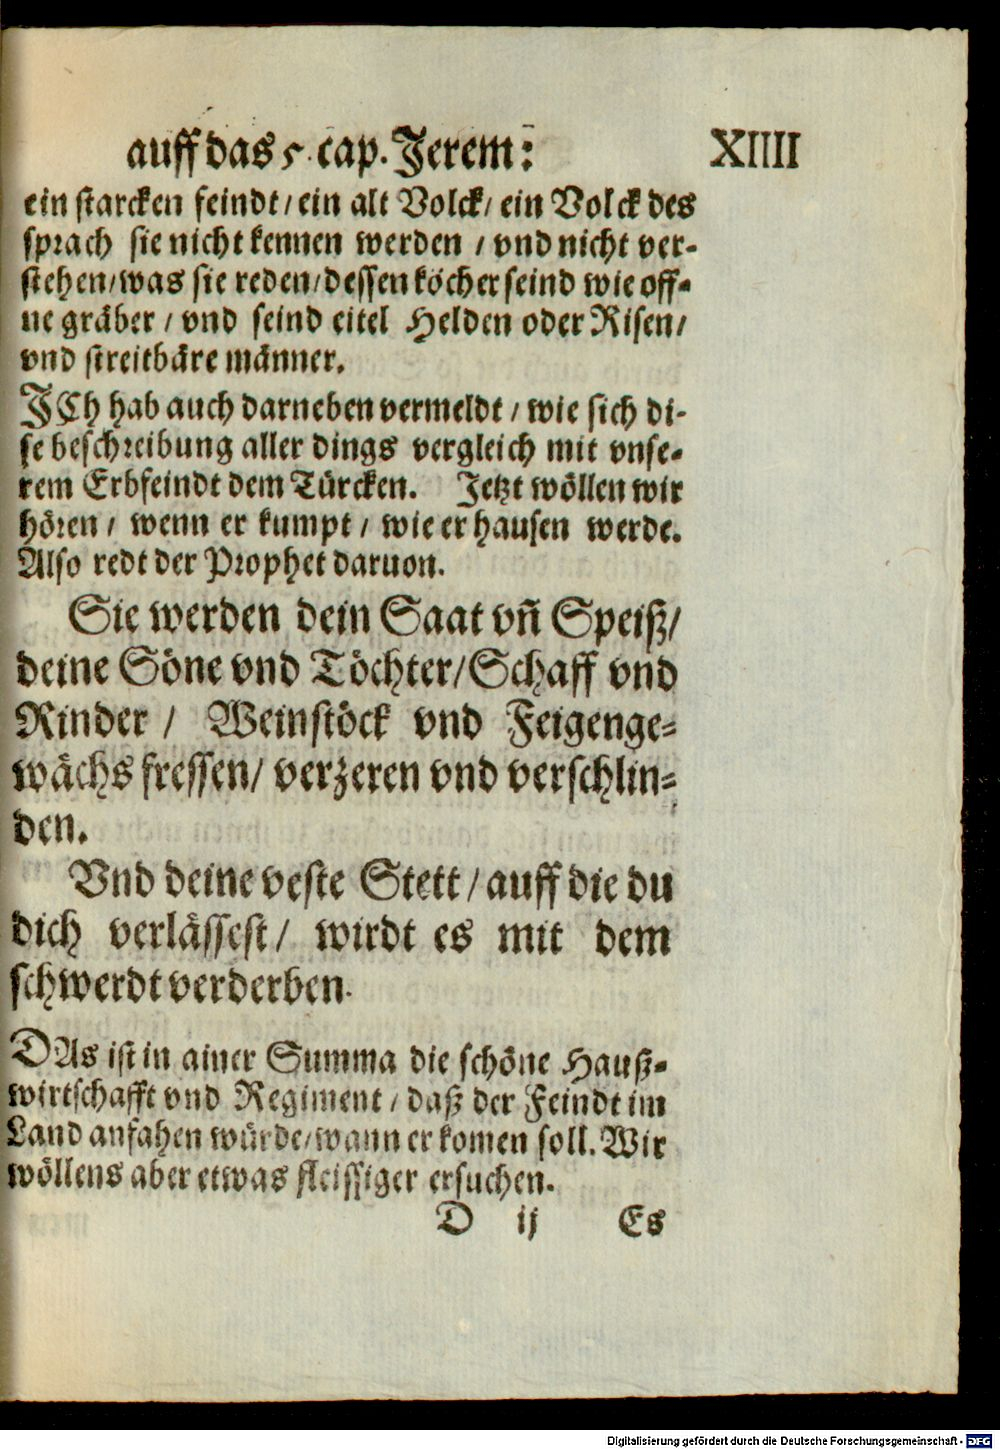 auff das 5. cap. Jerem: XIIII
ein starcken feindt / ein alt Volck / ein Volck des
sprach sie nicht kennen werden / vnd nicht ver-
stehen / was sie reden / dessen köcher seind wie off-
ne gräber / vnd seind eitel Helden oder Risen /
vnd streitbäre männer.
ICh hab auch darneben vermeldt / wie sich di-
se beschreibung aller dings vergleich mit vnse-
rem Erbfeindt dem Türcken. Jetzt wöllen wir
hören / wenn er kumpt / wie er hausen werde.
Also redt der Prophet daruon.
Sie werden dein Saat vn̄ Speiß /
deine Söne vnd Töchter / Schaff vnd
Rinder / Weinstöck vnd Feigenge-
wächs fressen / verzeren vnd verschlin-
den.
Vnd deine veste Stett / auff die du
dich verlässest / wirdt es mit dem
schwerdt verderben.
DAs ist in ainer Summa die schöne Hauß-
wirtschafft vnd Regiment / daß der Feindt im
Land anfahen würde / wann er komen soll. Wir
wöllens aber etwas fleissiger ersuchen.
D ij Es
Digitalisierung gefördert durch die Deutsche Forschungsgemeinschaft - DFG